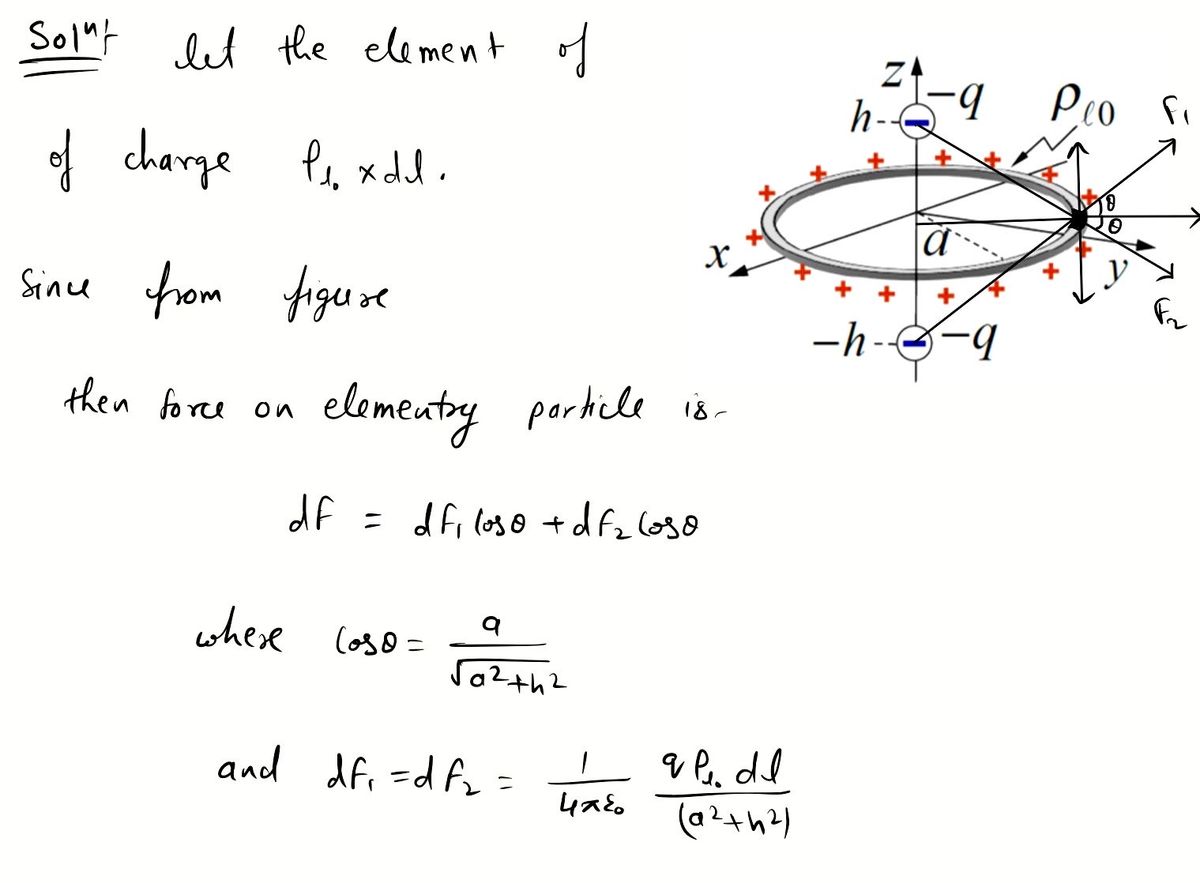 Solnt let the element of
of charge ρl₀ x dl.
Since from figure
then force on elementry particle is-
dF = dF₁ cosθ + dF₂ cosθ
where cosθ = a / √a²+h²
and dF₁ = dF₂ = 1 / 4πε₀ qρl₀ dl / (a²+h²)
z
-q
h
ρℓ0
F₁
θ
θ
a
x
y
F₂
-h
-q